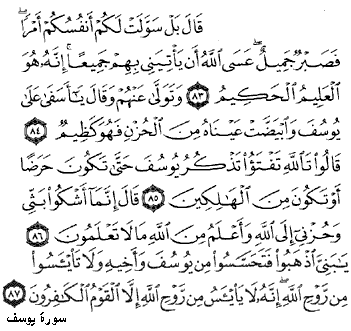 قَالَ بَلْ سَوَّلَتْ لَكُمْ أَنفُسُكُمْ أَمْرًا ۖ
فَصَبْرٌ جَمِيلٌ ۖ عَسَى اللَّهُ أَن يَأْتِيَنِي بِهِمْ جَمِيعًا ۚ إِنَّهُ هُوَ
الْعَلِيمُ الْحَكِيمُ ﴿٨٣﴾ وَتَوَلَّىٰ عَنْهُمْ وَقَالَ يَا أَسَفَىٰ عَلَىٰ
يُوسُفَ وَابْيَضَّتْ عَيْنَاهُ مِنَ الْحُزْنِ فَهُوَ كَظِيمٌ ﴿٨٤﴾
قَالُوا تَاللَّهِ تَفْتَؤُا تَذْكُرُ يُوسُفَ حَتَّىٰ تَكُونَ حَرَضًا
أَوْ تَكُونَ مِنَ الْهَالِكِينَ ﴿٨٥﴾ قَالَ إِنَّمَا أَشْكُوا بَثِّي
وَحُزْنِي إِلَى اللَّهِ وَأَعْلَمُ مِنَ اللَّهِ مَا لَا تَعْلَمُونَ ﴿٨٦﴾
يَا بَنِيَّ اذْهَبُوا فَتَحَسَّسُوا مِن يُوسُفَ وَأَخِيهِ وَلَا تَايْئَسُوا
مِن رَّوْحِ اللَّهِ ۖ إِنَّهُ لَا يَايْئَسُ مِن رَّوْحِ اللَّهِ إِلَّا الْقَوْمُ الْكَافِرُونَ ﴿٨٧﴾
سورة يوسف